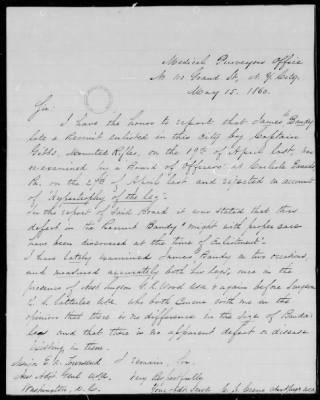 Medical Purveyors Office
No 110 Grand St, N.Y. City.
May 15. 1860.
Sir
I have the honor to report that James Bandy
late a Recruit enlisted in this City by Captain
Gibbs, Mounted Rifles, on the 19th of April last, was
reexamined by a "Board of Officers" at Carlisle Barracks
Pa, on the 27th of April last and rejected on account
of "Hypertrophy of the leg"
In the report of said Board it was stated that this
defect in the Recruit Bandy "might with proper care
have been discovered at the time of Enlistment."
I have lately examined James Bandy on two occasions,
and measured accurately both his legs, once in the
presence of Asst Surgeon Wood USA & again before Surgeon
Satterlee USA who both concur with me in the
opinion that there is no difference in the size of Bandy's
legs and that there is no apparent defect or disease
existing in them.
I remain, Sir,
Very Respectfully
Your Obt Servt
Major E. D. Townsend
Asst Adjt Genl USA.
Washington, D.C.
C. H. Crane Asst Surg USA